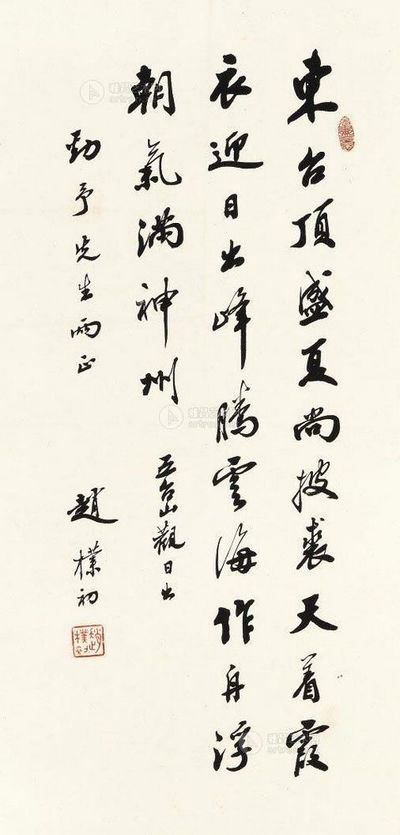 東台頂盛夏尚披裘天着霞
衣迎日出峰騰雲海作舟浮
朝氣滿神州
五台山觀日出
勁予先生兩正
趙樸初